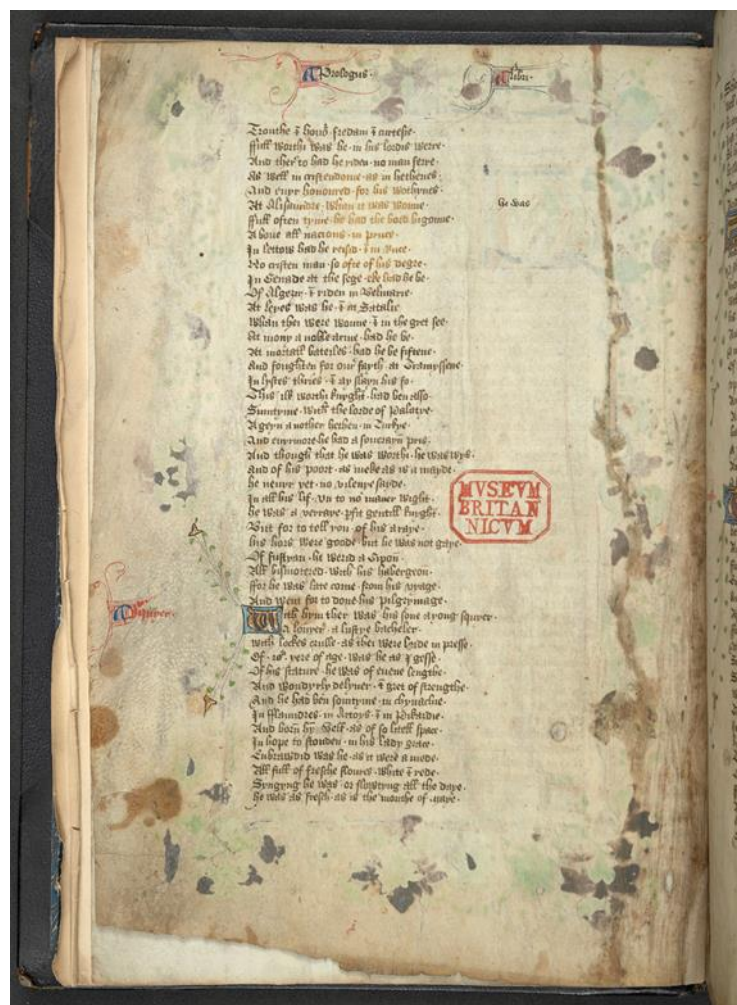 Prologus
libri
Trouthe & hono᷑ fredam & curtesie
ffull worthi was he in his lordis werre
And ther to had he riden no man ferre
As well in cristendome as in hethenes
And euyr honoured for his wothynes
At Alisaundre whan it was wonne he was
ffull often tyme he had the bord bigonne
Aboue all nacions in pruce
In lettow had he reisid & in Ruce
No cristen man so ofte of his degre
In Genade at the sege eke had he be
Of Algezir & riden in Belmarie
At leyes was he & at Satalie
Whan thei were wonne & in the gret see
At mony a noble arme had he be
At mortall batailes had he be fiftene
And foughten for our fayth at Tramyssene
In lystes thries & ay slayn his fo
This ilk worthi knyght had ben also
Sumtyme with the lorde of Palatye
Ageyn a nother hethen in Turkye
And euyrmore he had a souerayn pris
And though that he was worthi he was wys
And of his poort as meke as is a mayde
he neuyr yet no vilenye sayde
In all his lif vn to no maner wight
he was a verraye pfit gentill knyght
But for to tell you of his araye
his hors were goode but he was not gaye
Of fustyan he werid a Gipon
All bismotered with his habergeon
ffor he was late come from his vyage
And went for to done his pilgrymage
Squyer
With hym ther was his sone a yong squyer
A louyer a lustye bacheler
with lockes crulle as thei were leyde in presse
Of xx yere of age was he as I gesse
Of his stature he was of euene lengthe
And wondyrly delyuer & gret of strengthe
And he had ben somtyme in chyuachie
In fflaundres in Artoys & in Pikardie
And born hy self as of so litell space
In hope to stonden in his lady grace
Enbrawdid was he as it were a mede
All full of fresche floures white & rede
Syngyng he was or flowtyng all the daye
he was as fresch as is the monthe of maye
MVSEVM
BRITAN
NICVM